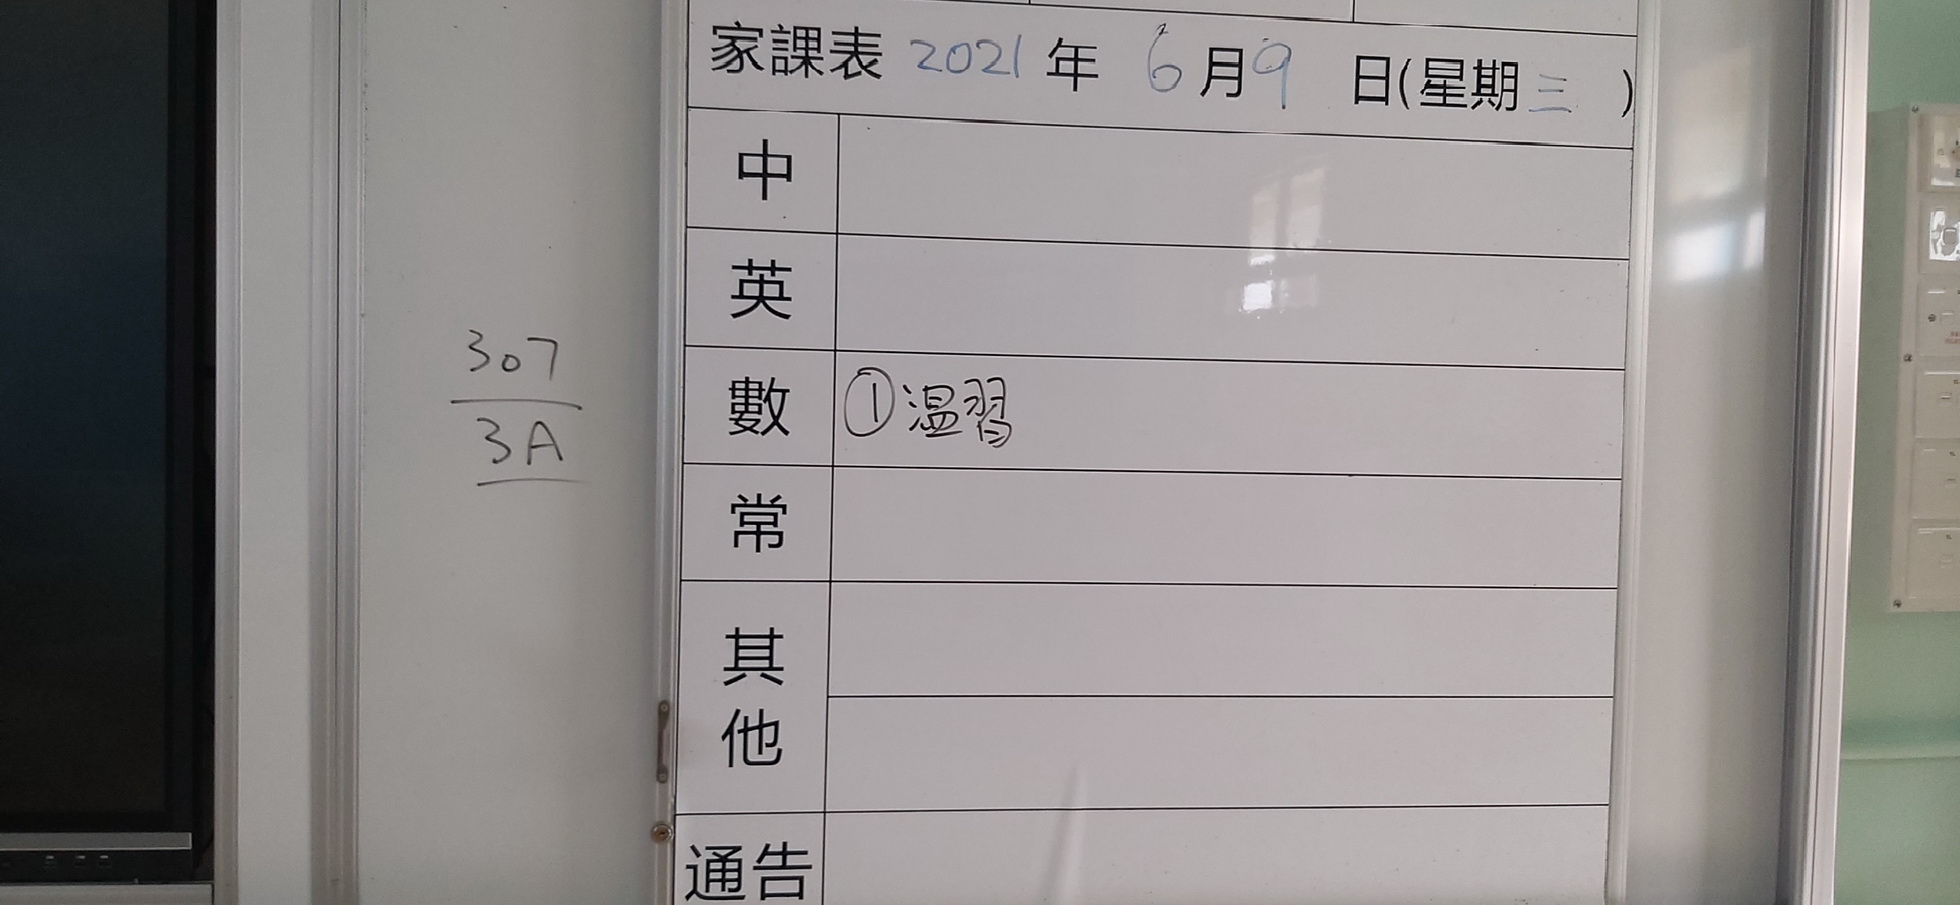 家課表 2021 年 6 月 9 日(星期三)
中
英
數 ①温習
常
其他
通告
307
3A